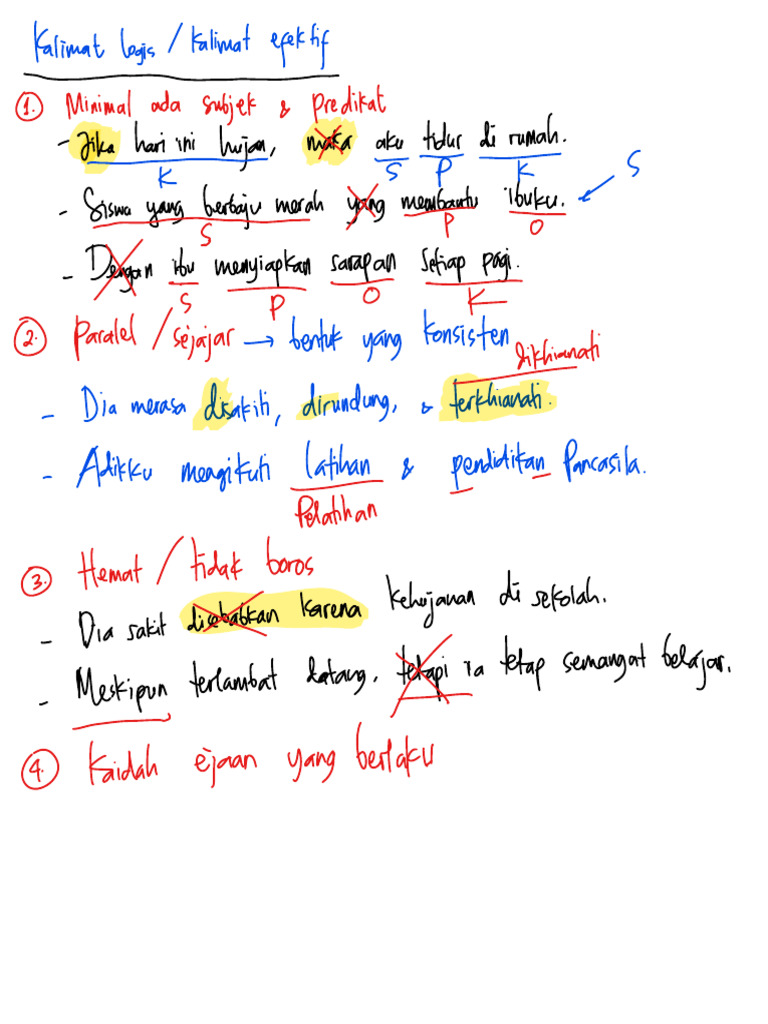 Kalimat logis / kalimat efektif
1. Minimal ada subjek & Predikat
- Jika hari ini hujan, maka aku tidur di rumah.
K S P K
- Siswa yang berbaju merah yang membantu ibuku. S
S P O
- Dengan ibu menyiapkan sarapan setiap pagi.
S P O K
2. Paralel / sejajar → bentuk yang konsisten
dikhianati
- Dia merasa disakiti, dirundung, & terkhianati.
- Adikku mengikuti latihan & pendidikan Pancasila.
Pelatihan
3. Hemat / tidak boros
- Dia sakit disebabkan karena kehujanan di sekolah.
- Meskipun terlambat datang, tetapi ia tetap semangat belajar.
4. Kaidah ejaan yang berlaku